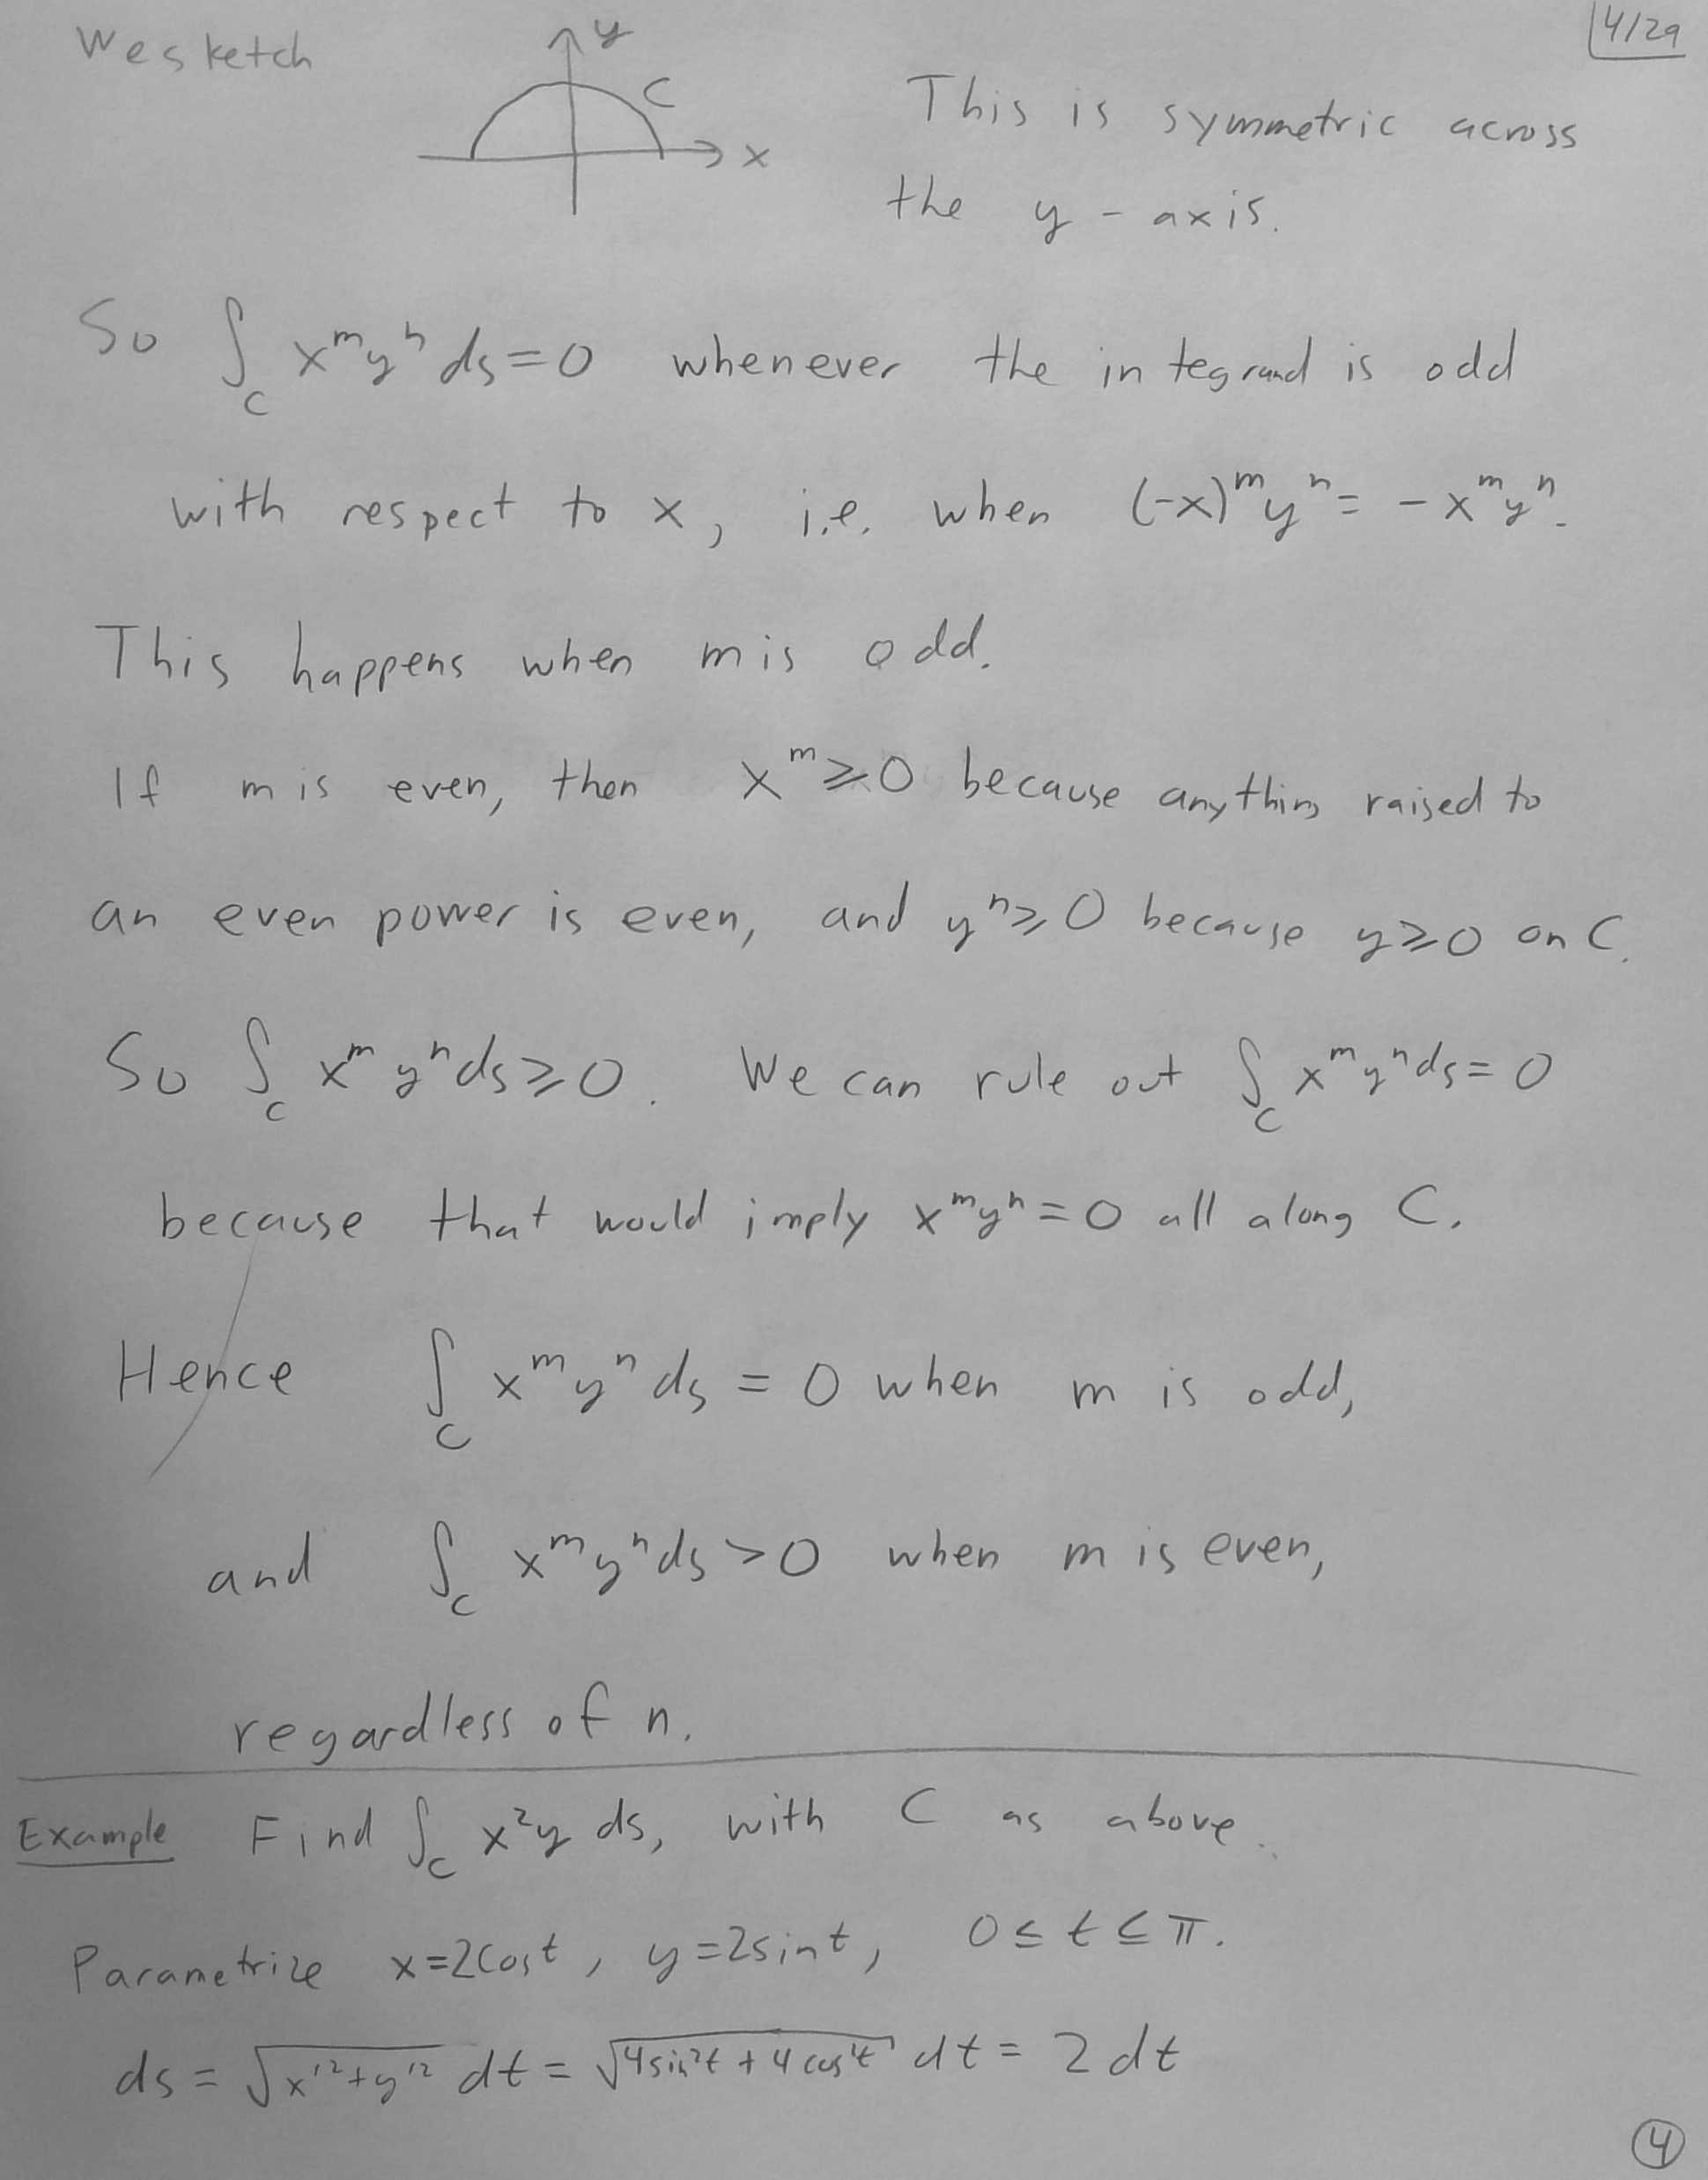 4/29
We sketch
y
C
x
This is symmetric across
the y-axis.
So ∫_C x^m y^n ds = 0 whenever the integrand is odd
with respect to x, i.e. when (-x)^m y^n = -x^m y^n.
This happens when m is odd.
If m is even, then x^m ≥ 0 because anything raised to
an even power is even, and y^n ≥ 0 because y ≥ 0 on C.
So ∫_C x^m y^n ds ≥ 0. We can rule out ∫_C x^m y^n ds = 0
because that would imply x^m y^n = 0 all along C.
Hence ∫_C x^m y^n ds = 0 when m is odd,
and ∫_C x^m y^n ds > 0 when m is even,
regardless of n.
Example Find ∫_C x²y ds, with C as above.
Parametrize x=2cost, y=2sint, 0 ≤ t ≤ π.
ds = √(x'²+y'²) dt = √(4sin²t + 4cos²t) dt = 2 dt
4